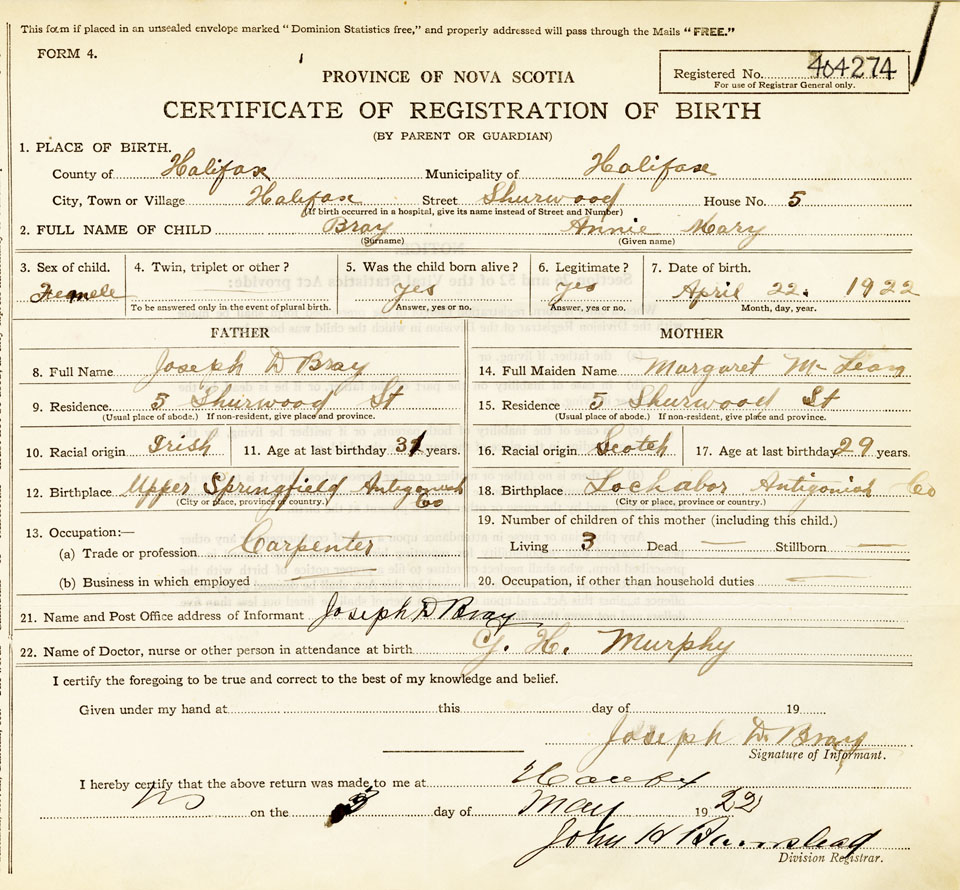 This form if placed in an unsealed envelope marked "Dominion Statistics free," and properly addressed will pass through the Mails "FREE."
FORM 4.
Registered No. 404274
For use of Registrar General only.
PROVINCE OF NOVA SCOTIA
CERTIFICATE OF REGISTRATION OF BIRTH
(BY PARENT OR GUARDIAN)
1. PLACE OF BIRTH.
County of Halifax Municipality of Halifax
City, Town or Village Halifax Street Shurwood House No. 5
(If birth occurred in a hospital, give its name instead of Street and Number)
2. FULL NAME OF CHILD Bray Annie Mary
(Surname) (Given name)
3. Sex of child. 4. Twin, triplet or other? 5. Was the child born alive? 6. Legitimate? 7. Date of birth.
Femele Yes Yes April 22. 1922
To be answered only in the event of plural birth. Answer, yes or no. Answer, yes or no. Month, day, year.
FATHER MOTHER
8. Full Name Joseph D Bray 14. Full Maiden Name Margaret Mc Lean
9. Residence. 5 Shurwood St 15. Residence 5 Shurwood St
(Usual place of abode.) If non-resident, give place and province. (Usual place of abode.) If non-resident, give place and province.
10. Racial origin Irish 11. Age at last birthday 31 years. 16. Racial origin Scotch 17. Age at last birthday 29 years.
12. Birthplace Upper Springfield Antigonish Co 18. Birthplace Lochabor Antigonish Co
(City or place, province or country.) (City or place, province or country.)
13. Occupation:— 19. Number of children of this mother (including this child.)
(a) Trade or profession Carpenter Living 3 Dead — Stillborn —
(b) Business in which employed — 20. Occupation, if other than household duties —
21. Name and Post Office address of Informant Joseph D Bray
22. Name of Doctor, nurse or other person in attendance at birth G. H. Murphy
I certify the foregoing to be true and correct to the best of my knowledge and belief.
Given under my hand at this day of 19
Joseph D. Bray
Signature of Informant.
I hereby certify that the above return was made to me at Halifax
NS on the 3 day of May 1922
John H Barnstead
Division Registrar.